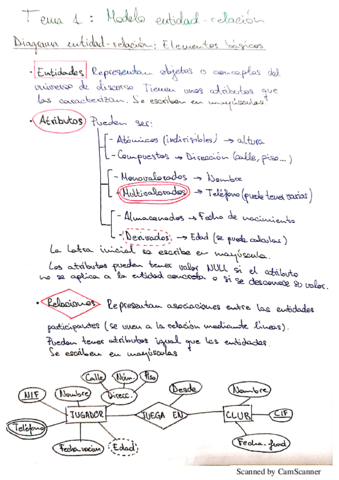 Tema 1: Modelo entidad-relación
Diagrama entidad-relación: Elementos básicos
· Entidades Representan objetos o conceptos del
universo de discurso. Tienen unos atributos que
las caracterizan. Se escriben en mayúsculas
· Atributos Pueden ser:
- Atómicos (indivisibles) → altura
- Compuestos → Dirección (calle, piso...)
- Monovalorados → Nombre
- Multivalorados → Teléfono (puede tener varios)
- Almacenados → Fecha de nacimiento
- Derivados → Edad (se puede calcular)
La letra inicial se escribe en mayúscula.
Los atributos pueden tener valor NULL si el atributo
no se aplica a la entidad concreta o si se desconoce su valor.
· Relaciones Representan asociaciones entre las entidades
participantes (se unen a la relación mediante líneas).
Pueden tener atributos igual que las entidades
Se escriben en mayúsculas
Calle Núm. Piso
NIF Nombre Direcc. Desde Nombre
Teléfono JUGADOR JUEGA EN CLUB CIF
Fecha nacim Edad Fecha_fund
Scanned by CamScanner